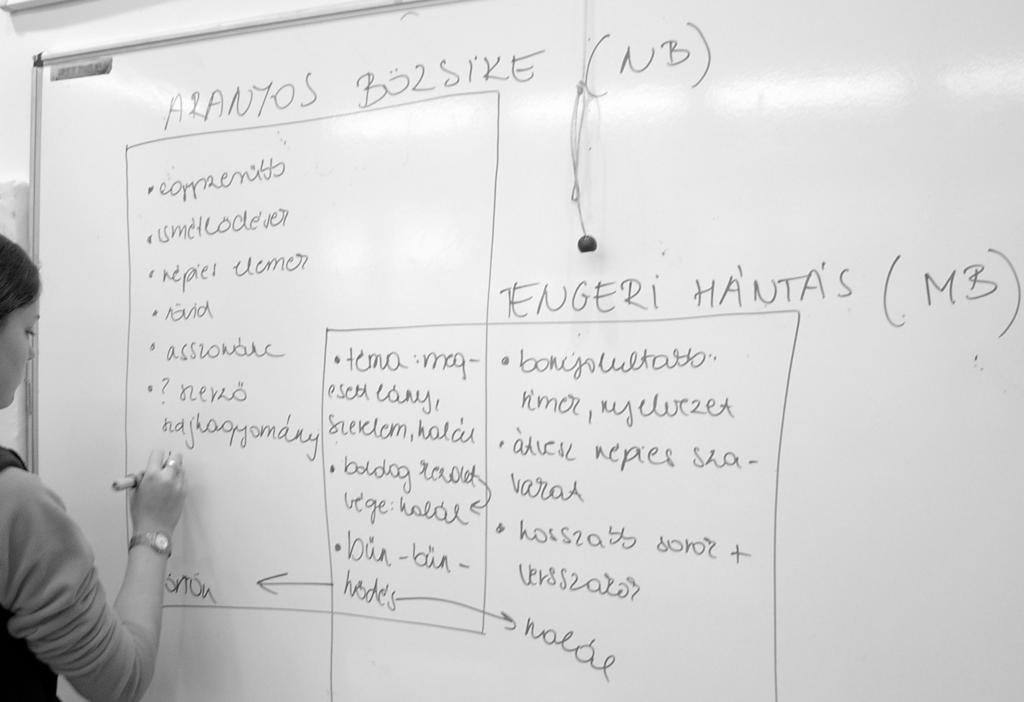 ARANYOS BÖZSIKE (NB)
• egyszerűbb
• ismétlődések
• népies elemek
• rövid
• asszonánc
• ? szerző
szájhagyomány
TENGERI HÁNTÁS (MB)
• téma: meg-
esett lány,
szerelem, halál
• boldog kezdet
vége: halál
• bűn-bűn-
hődés
börtön
halál
• bonyolultabb
rímek, nyelvezet
• átvesz népies sza-
vakat
• hosszabb sorok +
versszakok